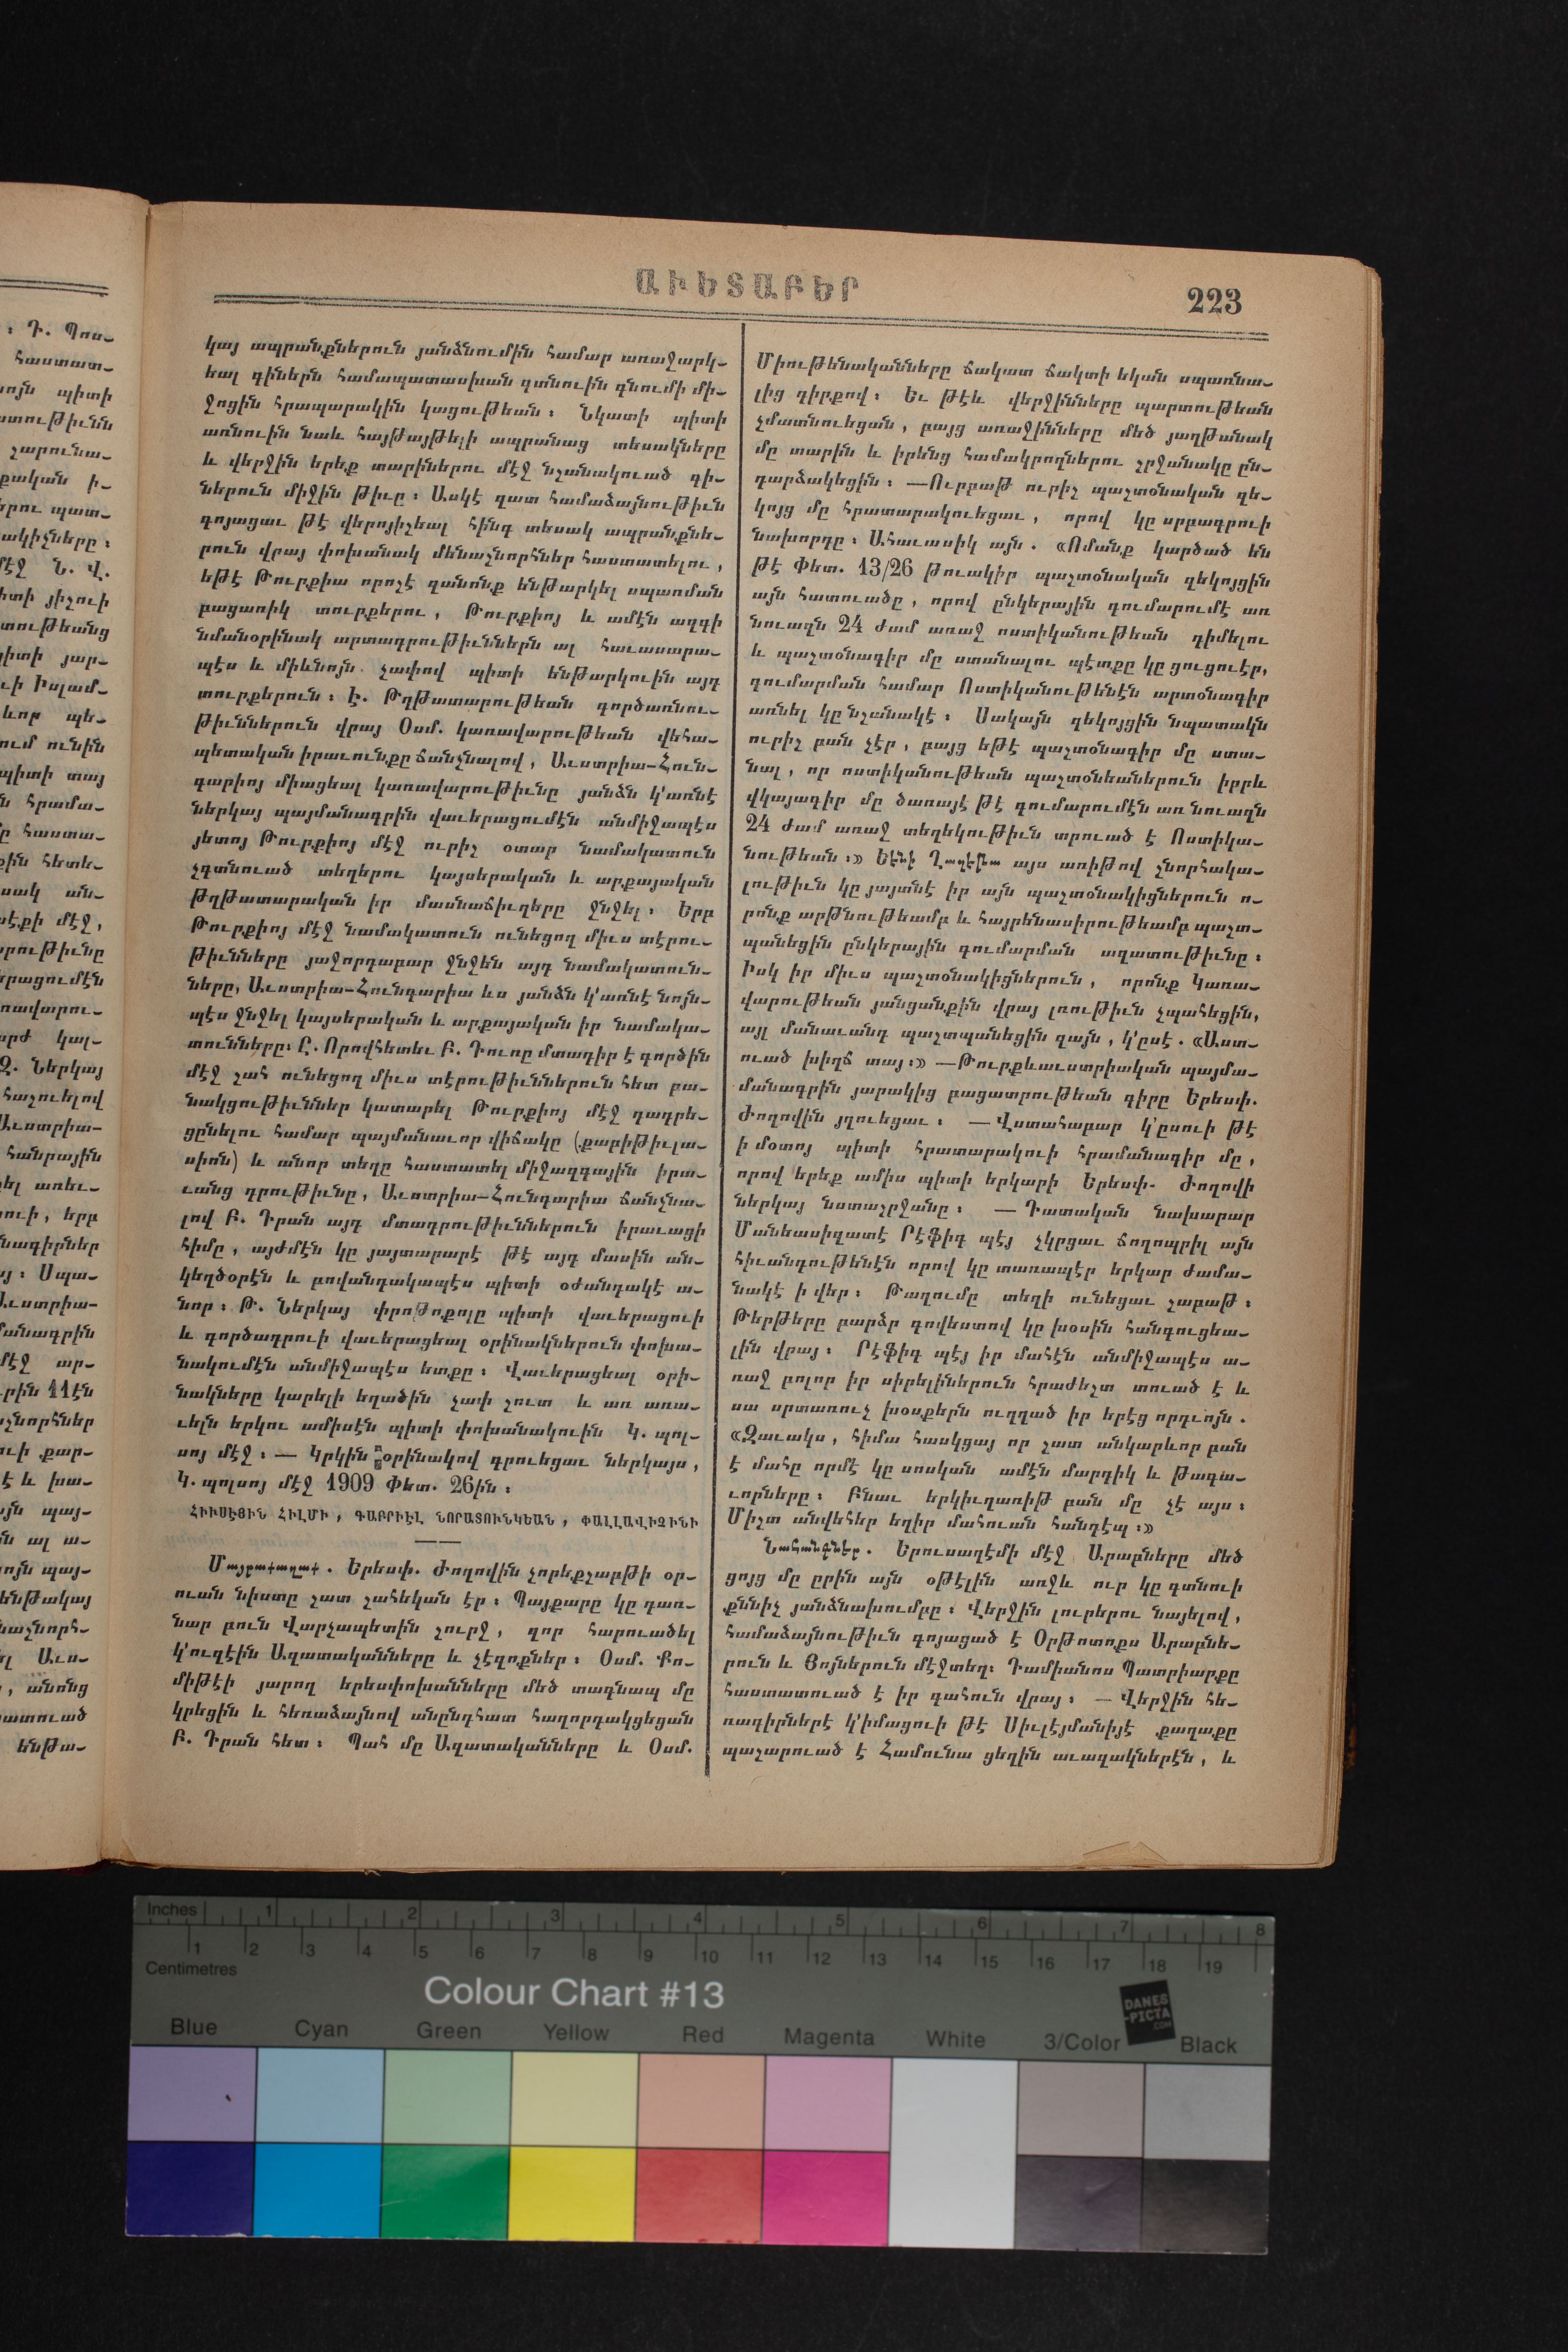 ԱՒԵՏԱԲԵՐ
223
կայ ապրանքներուն յանձնումին համար առաջարկ-
եալ գիներն համապատասխան գտնուին գնումի մի-
ջոցին հրապարակին կացութեան։ Նկատի պիտի
առնուին նաև հայթայթելի ապրանաց տեսակները
և վերջին երեք տարիներու մէջ նշանակուած գի-
ներուն միջին թիւը։ Ասկէ զատ համաձայնութիւն
գոյացաւ թէ վերոյիշեալ հինգ տեսակ ապրանքնե-
րուն վրայ փոխանակ մենաշնորհներ հաստատելու,
եթէ Թուրքիա որոշէ զանոնք ենթարկել սպառման
բացառիկ տուրքերու, Թուրքիոյ և ամէն ազգի
նմանօրինակ արտադրութիւններն ալ հաւասարա-
պէս և միևնոյն չափով պիտի ենթարկուին այդ
տուրքերուն։ Է. Թղթատարութեան գործառնու-
թիւններուն վրայ Օսմ. կառավարութեան վեհա-
պետական իրաւունքը ճանչնալով, Աւստրիա-Հուն-
գարիոյ միացեալ կառավարութիւնը յանձն կ'առնէ
ներկայ պայմանագրին վաւերացումէն անմիջապէս
յետոյ Թուրքիոյ մէջ ուրիշ օտար նամակատուն
չգտնուած տեղերու կայսերական և արքայական
թղթատարական իր մասնաճիւղերը ջնջել։ Երբ
Թուրքիոյ մէջ նամակատուն ունեցող միւս տէրու-
թիւնները յաջորդաբար ջնջեն այդ նամակատուն-
ները, Աւստրիա-Հունգարիա ևս յանձն կ'առնէ նոյն-
պէս ջնջել կայսերական և արքայական իր նամակա-
տունները։ Ը. Որովհետեւ Բ. Դուռը մտադիր է գործին
մէջ շահ ունեցող միւս տէրութիւններուն հետ բա-
նակցութիւններ կատարել Թուրքիոյ մէջ դադրե-
ցընելու համար պայմանաւոր վիճակը (քաբիթիւլա-
սիոն) և անոր տեղը հաստատել միջազգային իրա-
ւանց դրութիւնը, Աւստրիա-Հունգարիա ճանչնա-
լով Բ. Դրան այդ մտադրութիւններուն իրաւացի
հիմը, այժմէն կը յայտարարէ թէ այդ մասին ան-
կեղծօրէն և բովանդակապէս պիտի օժանդակէ ա-
նոր։ Թ. Ներկայ փրոթոքոլը պիտի վաւերացուի
և գործադրուի վաւերացեալ օրինակներուն փոխա-
նակումէն անմիջապէս ետքը։ Վաւերացեալ օրի-
նակները կարելի եղածին չափ շուտ և առ առա-
ւելն երկու ամիսէն պիտի փոխանակուին Կ. պոլ-
սոյ մէջ։ — Կրկին օրինակով գրուեցաւ ներկայս,
Կ. պոլսոյ մէջ 1909 Փետ. 26ին։
ՀԻՒՍԷՅԻՆ ՀԻԼՄԻ, ԳԱԲՐԻԷԼ ՆՈՐԱՏՈՒՆԿԵԱՆ, ՓԱԼԼԱՎԻՉԻՆԻ
Մայրաքաղաք. Երեսփ. Ժողովին չորեքշաբթի օր-
ուան նիստը շատ շահեկան էր։ Պայքարը կը դառ-
նար բուն Վարչապետին շուրջ, զոր հարուածել
կ'ուզէին Ազատականները և չէզոքներ։ Օսմ. Քո-
միթէի յարող երեսփոխանները մեծ տագնապ մը
կրեցին և հեռաձայնով անընդհատ հաղորդակցեցան
Բ. Դրան հետ։ Պահ մը Ազատականները և Օսմ.
Միութենականները ճակատ ճակտի եկան սպառնա-
լից դիրքով։ Եւ թէև վերջինները պարտութեան
չմատնուեցան, բայց առաջինները մեծ յաղթանակ
մը տարին և իրենց համակրողներու շրջանակը ըն-
դարձակեցին։ —Ուրբաթ ուրիշ պաշտօնական զե-
կոյց մը հրատարակուեցաւ, որով կը սրբագրուի
նախորդը։ Ահաւասիկ այն. «Ոմանք կարծած են
թէ Փետ. 13/26 թուակիր պաշտօնական զեկոյցին
այն հատուածը, որով ընկերային գումարումէ առ
նուազն 24 ժամ առաջ ոստիկանութեան դիմելու
և պաշտօնագիր մը ստանալու պէտքը կը ցուցուէր,
գումարման համար Ոստիկանութենէն արտօնագիր
առնել կը նշանակէ։ Սակայն զեկոյցին նպատակն
ուրիշ բան չէր, բայց եթէ պաշտօնագիր մը ստա-
նալ, որ ոստիկանութեան պաշտօնեաներուն իբրև
վկայագիր մը ծառայէ թէ գումարումէն առ նուազն
24 ժամ առաջ տեղեկութիւն տրուած է Ոստիկա-
նութեան։» Եէնի Ղազէթա այս առիթով շնորհակա-
լութիւն կը յայտնէ իր այն պաշտօնակիցներուն ո-
րոնք արթնութեամբ և հայրենասիրութեամբ պաշտ-
պանեցին ընկերային գումարման ազատութիւնը։
Իսկ իր միւս պաշտօնակիցներուն, որոնք Կառա-
վարութեան յանցանքին վրայ լռութիւն չպահեցին,
այլ մանաւանդ պաշտպանեցին զայն, կ'ըսէ. «Աստ-
ուած խիղճ տայ։» —Թուրքևաւստրիական պայմա-
մանագրին յարակից բացատրութեան գիրը Երեսփ.
Ժողովին յղուեցաւ։ — Վստահաբար կ'ըսուի թէ
ի մօտոյ պիտի հրատարակուի հրամանագիր մը,
որով երեք ամիս պիտի երկարի Երեսփ. Ժողովի
ներկայ նստաշրջանը։ — Դատական նախարար
Մանեասիզատէ Րէֆիդ պէյ չկրցաւ ճողոպրիլ այն
հիւանդութենէն որով կը տառապէր երկար ժամա-
նակէ ի վեր։ Թաղումը տեղի ունեցաւ շաբաթ։
Թերթերը բարձր գովեստով կը խօսին հանգուցեա-
լին վրայ։ Րէֆիդ պէյ իր մահէն անմիջապէս ա-
ռաջ բոլոր իր սիրելիներուն հրաժեշտ տուած է և
սա սրտառուչ խօսքերն ուղղած իր երէց որդւոյն.
«Զաւակս, հիմա հասկցայ որ շատ անկարևոր բան
է մահը որմէ կը սոսկան ամէն մարդիկ և թագա-
ւորները։ Բնաւ երկիւղառիթ բան մը չէ այս։
Միշտ անվեհեր եղիր մահուան հանդէպ։»
Նահանգներ. Երուսաղէմի մէջ Արաբները մեծ
ցոյց մը ըրին այն օթէլին առջև ուր կը գտնուի
քննիչ յանձնախումբը։ Վերջին լուրերու նայելով,
համաձայնութիւն գոյացած է Օրթոտոքս Արաբնե-
րուն և Յոյներուն մէջտեղ։ Դամիանոս Պատրիարքը
հաստատուած է իր գահուն վրայ։ — Վերջին հե-
ռագիրներէ կ'իմացուի թէ Սիւլէյմանիյէ քաղաքը
պաշարուած է Համունա ցեղին աւազակներէն, և
Inches 1 2 3 4 5 6 7 8
1 2 3 4 5 6 7 8 9 10 11 12 13 14 15 16 17 18 19
Centimetres
Colour Chart #13
DANES
-PICTA
.COM
Blue Cyan Green Yellow Red Magenta White 3/Color Black